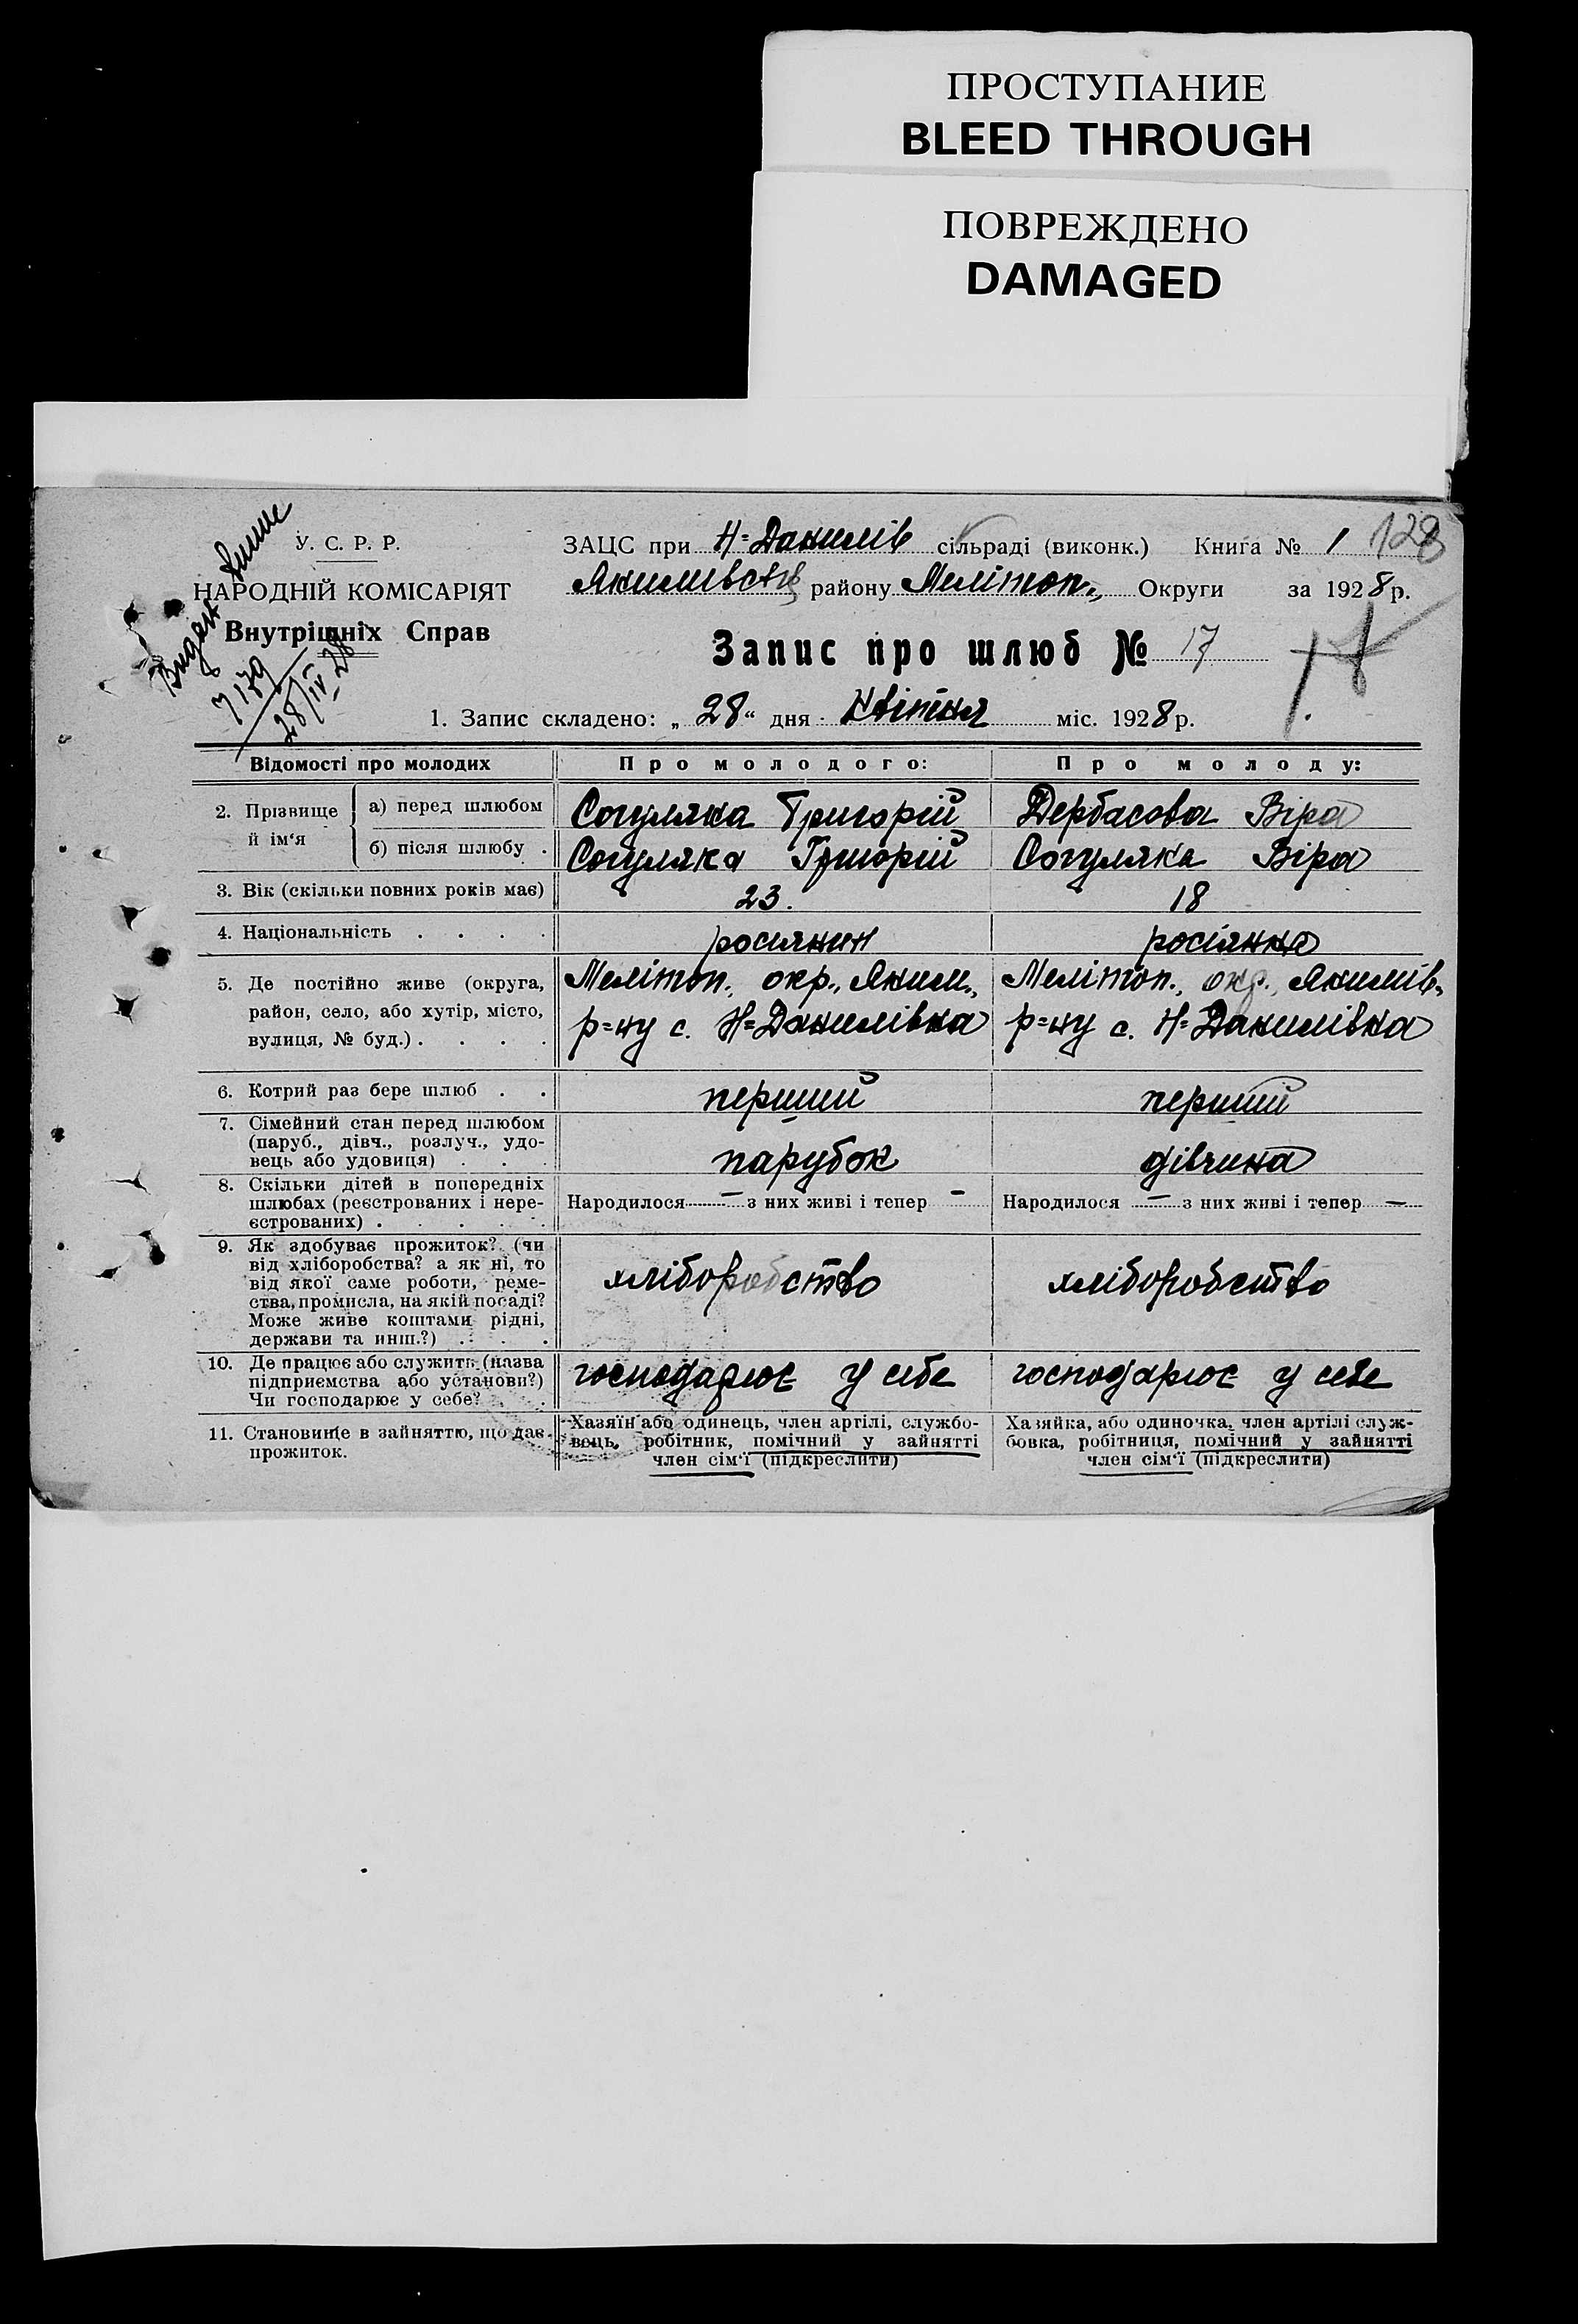 ПРОСТУПАНИЕ
BLEED THROUGH
ПОВРЕЖДЕНО
DAMAGED
У. С. Р. Р.
НАРОДНІЙ КОМІСАРІЯТ
Внутрішніх Справ
28/IV-28
ЗАЦС при Н=Данилів сільраді (виконк.) Книга № 1 128
Якимівськ району Мелітоп. Округи за 1928 р.
Запис про шлюб № 17
17
1. Запис складено: „28“ дня Квітня міс. 1928 р.
Відомості про молодих Про молодого: Про молоду:
2. Прізвище й ім‘я
а) перед шлюбом Согуляка Григорій Дербасова Віра
б) після шлюбу . Согуляка Григорій Согуляка Віра
3. Вік (скільки повних років має) 23. 18
4. Національність . . . . росиянин росіянка
5. Де постійно живе (округа, район, село, або хутір, місто, вулиця, № буд.) . . . .
Мелітоп., окр., Яким.,
р=ну с. Н=Данилівка
Мелітоп., окр., Якимів,
р=ну с. Н=Данилівка
6. Котрий раз бере шлюб . . перший перший
7. Сімейний стан перед шлюбом
(паруб., дівч., розлуч., удо-
вець або удовиця) . . . парубок дівчина
8. Скільки дітей в попередніх
шлюбах (реєстрованих і нере-
єстрованих) . . . . .
Народилося — з них живі і тепер —
Народилося — з них живі і тепер —
9. Як здобуває прожиток? (чи
від хліборобства? а як ні, то
від якої саме роботи, реме-
ства, промисла, на якій посаді?
Може живе коштами рідні,
держави та инш.?) . . .
хліборобство хліборобство
10. Де працює або служить (назва
підприємства або установи?)
Чи господарює у себе? . .
господарює у себе господарює у себе
11. Становище в зайняттю, що дає
прожиток.
Хазяїн або одинець, член артілі, службо-
вець, робітник, помічний у зайнятті
член сім‘ї (підкреслити)
Хазяйка, або одиночка, член артілі служ-
бовка, робітниця, помічний у зайнятті
член сім‘ї (підкреслити)